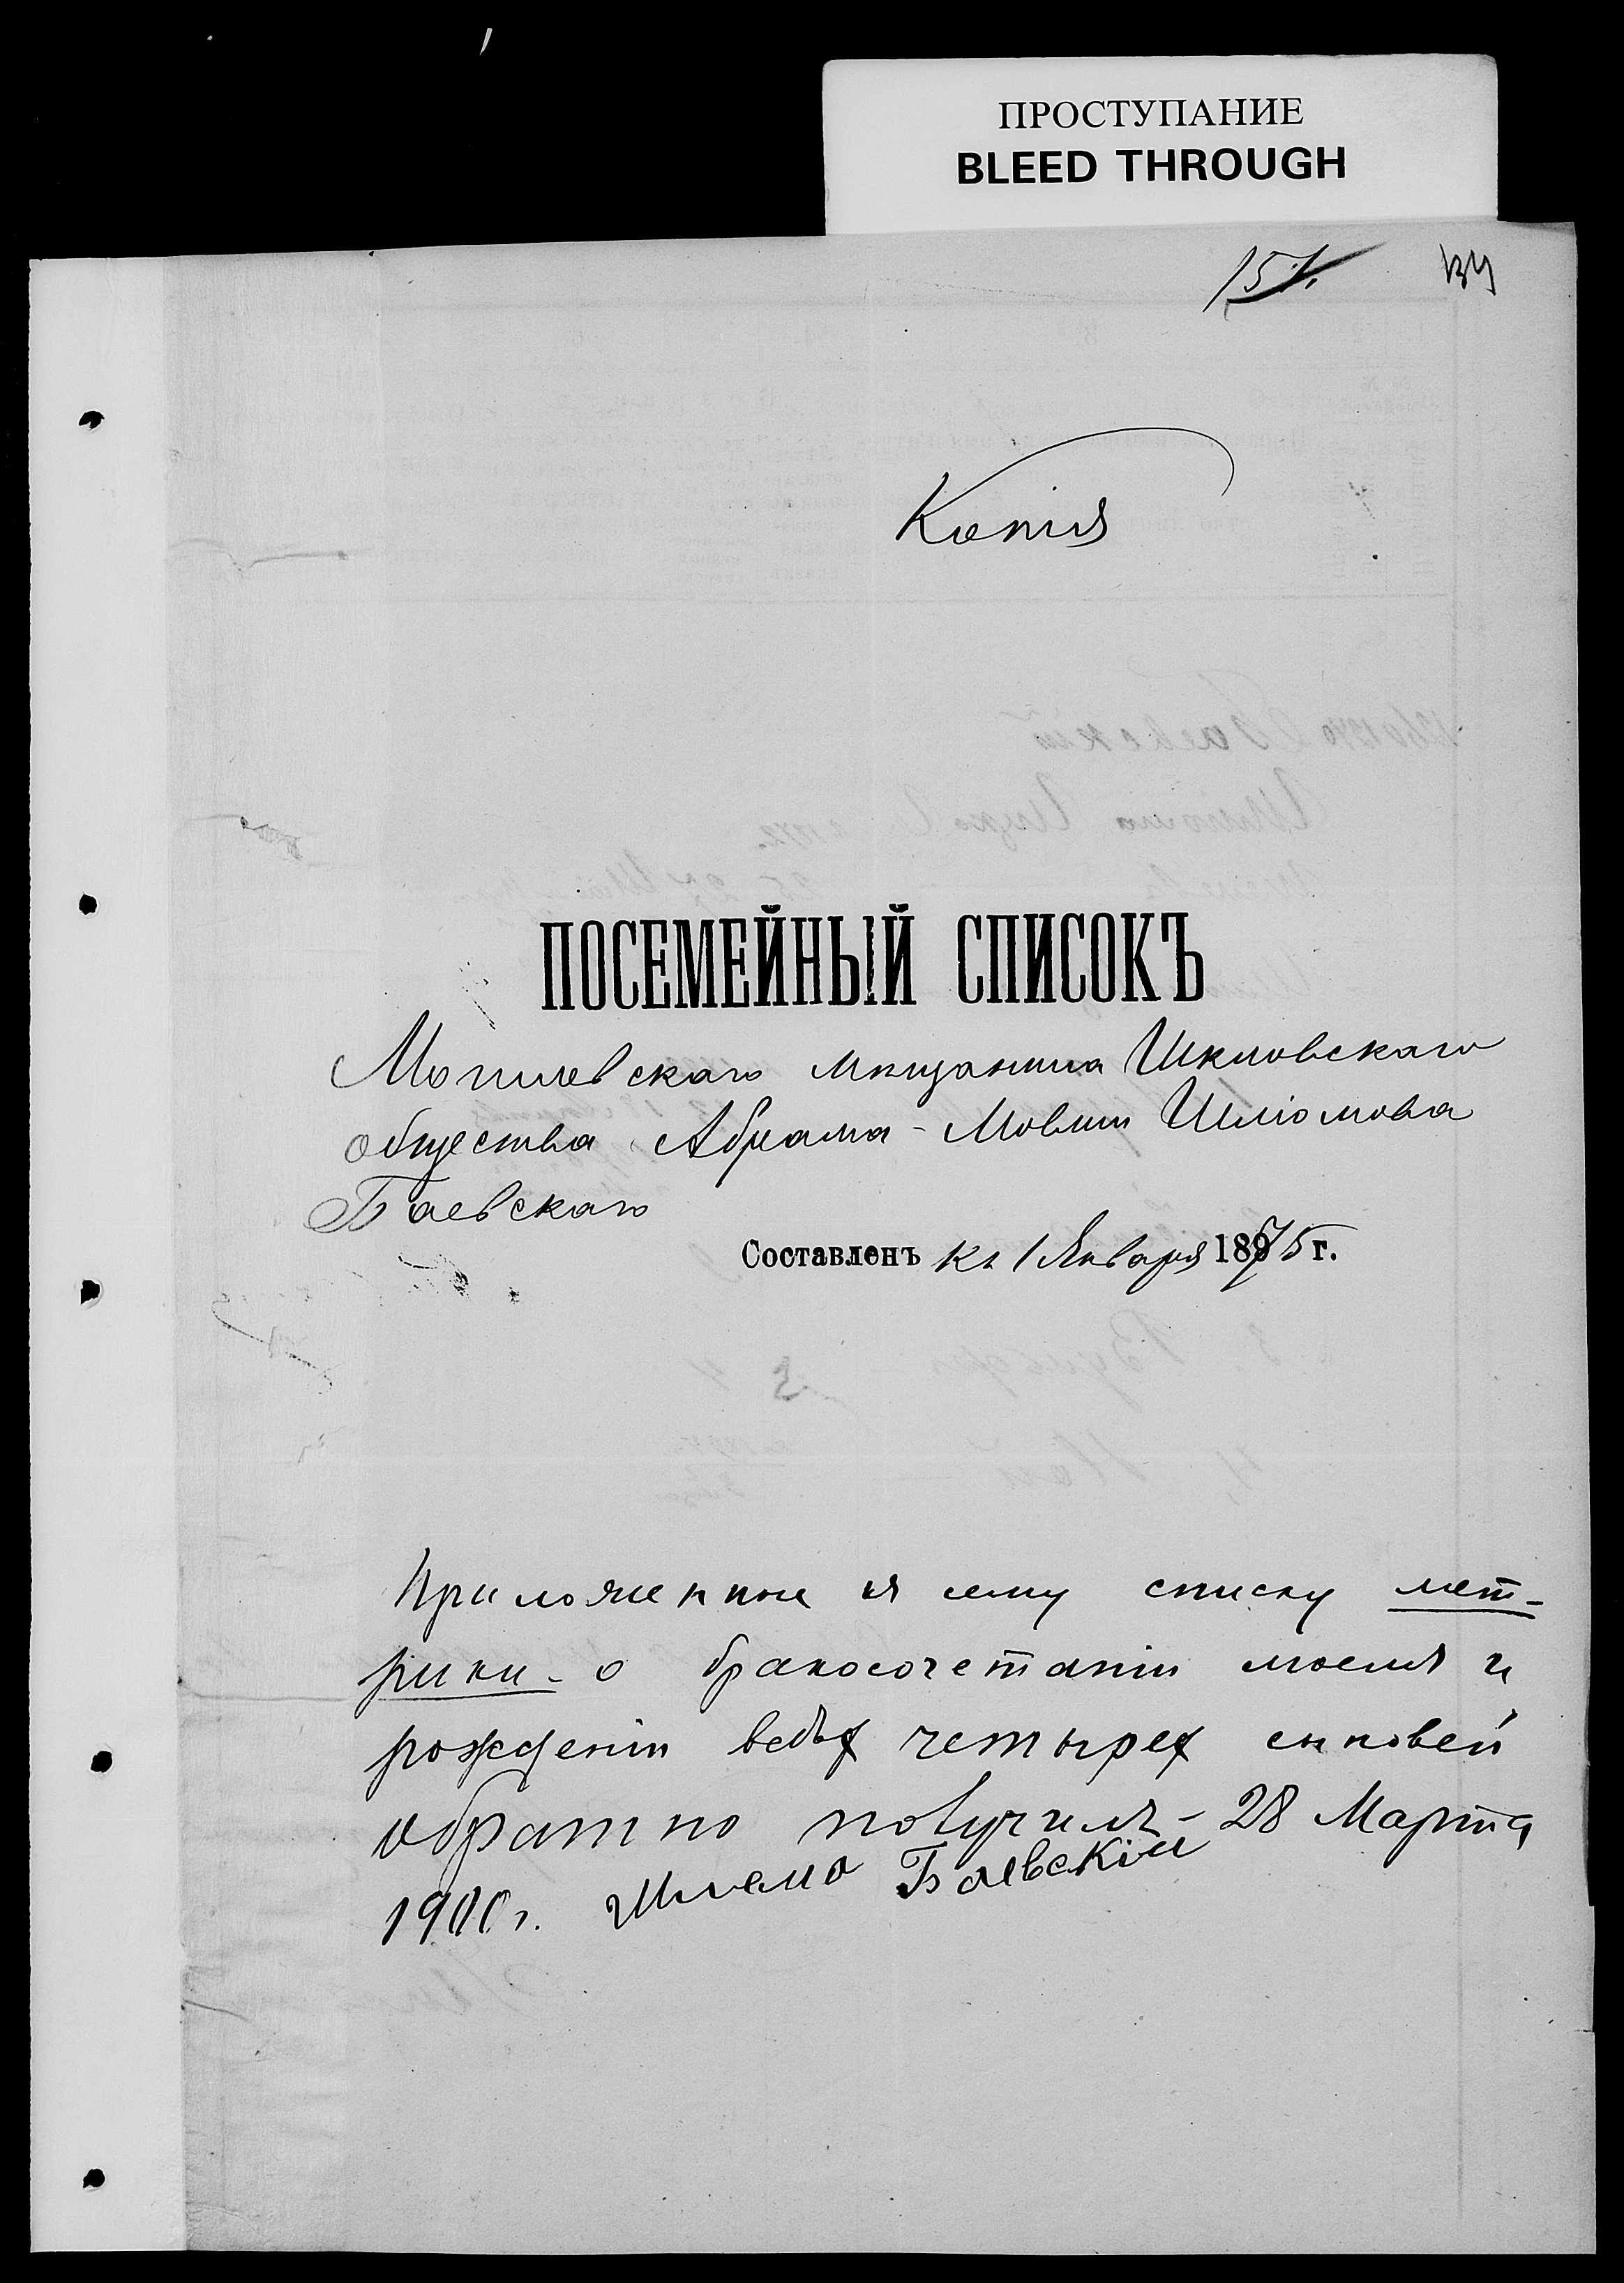 ПРОСТУПАНИЕ
BLEED THROUGH
151.
134
Копія
ПОСЕМЕЙНЫЙ СПИСОКЪ
Могилевскаго мѣщанина Шкловскаго
общества Абрама-Мовши Шліомова
Баевскаго
Составленъ къ 1 Января 1875 г.
Приложенные къ сему списку мет-
рики - о бракосочетаніи моемъ и
рожденіи всѣх четырех сыновей
обратно получилъ - 28 Марта
1900 г. Шлема Баевскій